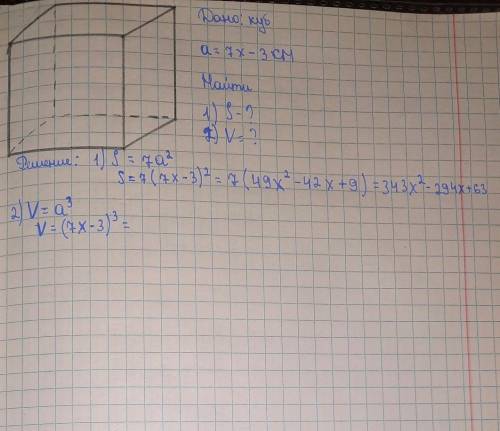 Дано: куб
a = 7x - 3 см
Найти
1) S - ?
2) V = ?
Решение: 1) S = 7a²
S = 7(7x-3)² = 7(49x² - 42x + 9) = 343x² - 294x + 63
2) V = a³
V = (7x-3)³ =